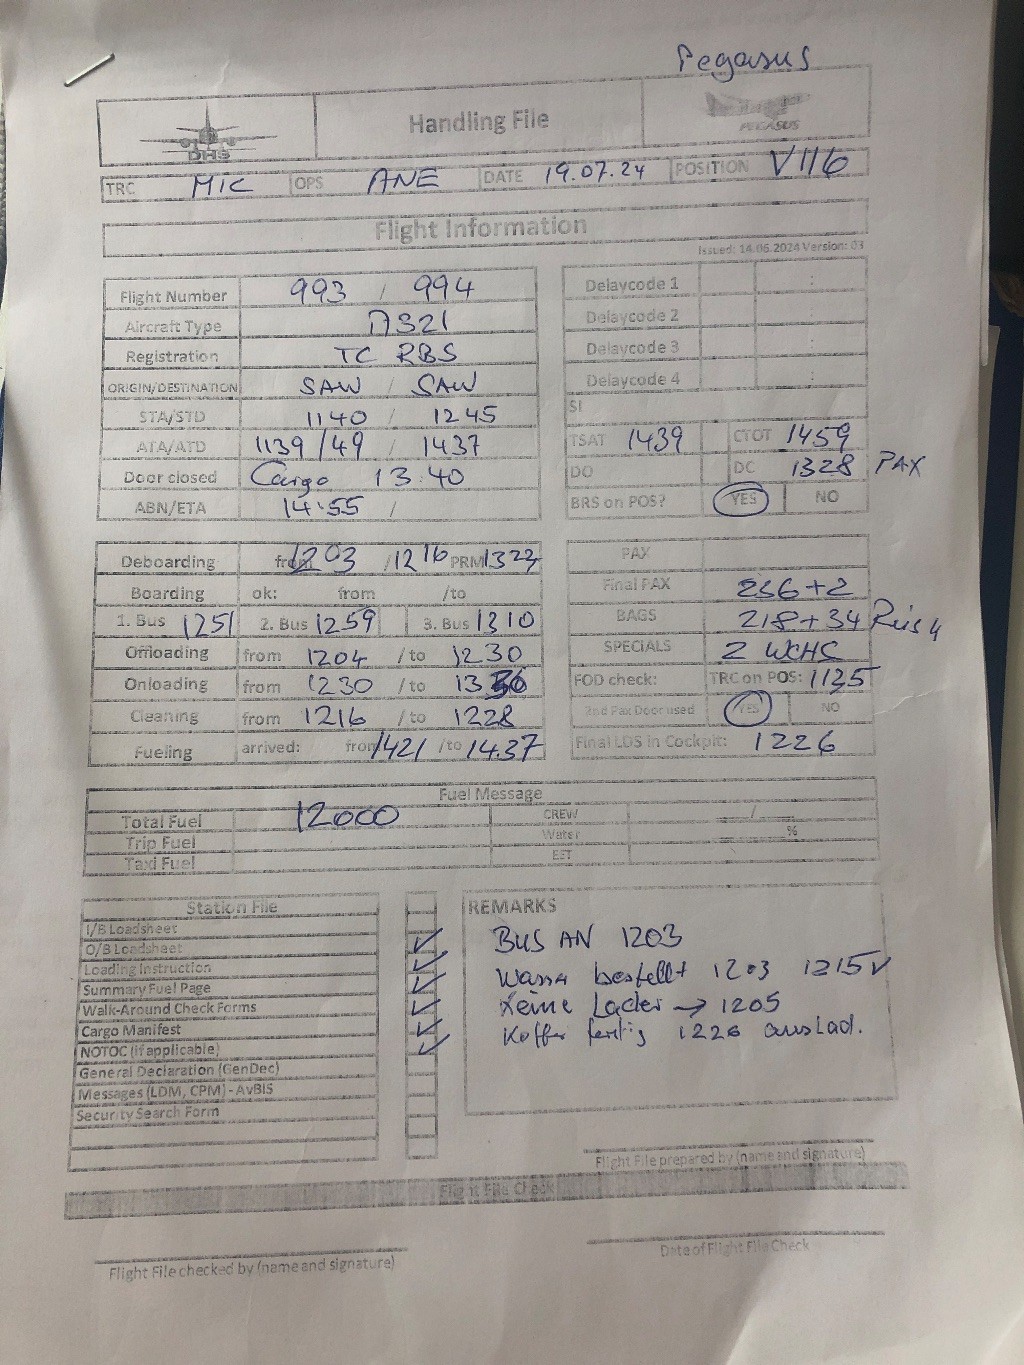 Pegasus
DHS
Handling File
PEGASUS
TRC MIC OPS ANE DATE 19.07.24 POSITION V116
Flight Information
Issued: 14.06.2024 Version: 03
Flight Number 993 / 994
Aircraft Type A321
Registration TC RBS
ORIGIN/DESTINATION SAW / SAW
STA/STD 1140 / 1245
ATA/ATD 1139/49 / 1437
Door closed Cargo 13:40
ABN/ETA 14:55 /
Delaycode 1 :
Delaycode 2 :
Delaycode 3 :
Delaycode 4 :
SI
TSAT 1439 CTOT 1459
DO DC 1328 PAX
BRS on POS? YES NO
Deboarding from 1203 /1216 PRM 1323
Boarding ok: from /to
1. Bus 1251 2. Bus 1259 3. Bus 1310
Offloading from 1204 /to 1230
Onloading from 1230 /to
Cleaning from 1216 /to 1228
Fueling arrived: from 1421 /to 14:37
PAX
Final PAX 236+2
BAGS 218+34
SPECIALS 2 WCHS
FOD check: TRC on POS: 1125
2nd Pax Door used YES NO
Final LDS in Cockpit: 1226
Fuel Message
Total Fuel 12000 CREW /
Trip Fuel Water %
Taxi Fuel EET
Station File
I/B Loadsheet
O/B Loadsheet
Loading Instruction
Summary Fuel Page
Walk-Around Check Forms
Cargo Manifest
NOTOC (if applicable)
General Declaration (GenDec)
Messages (LDM, CPM) - AvBIS
Security Search Form
REMARKS
BUS AN 1203
Wasser bestellt 1203 1215 ✓
Keine Lader → 1205
Koffer fertig 1226 auslad.
Flight File prepared by (name and signature)
Flight File Check
Flight File checked by (name and signature)
Date of Flight File Check